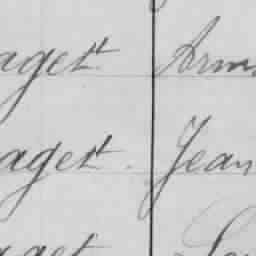 aget. Arm
aget. Jean
aget